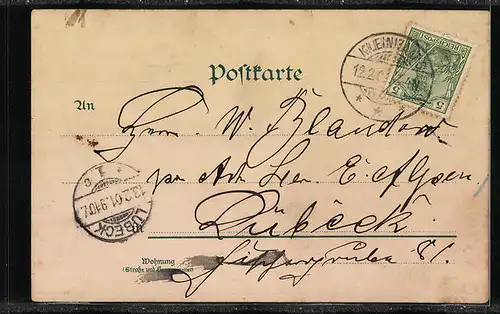 KLEINEN
12.2.01
REICHSPOST
5
5
Postkarte
An
Herrn W. Blandow
pr. Adr. Herr E.
Lübeck.
LÜBECK
13.2.01.9-10V.
* 1 c
Wohnung
(Straße und Hausnummer)
Fischergrube 81.